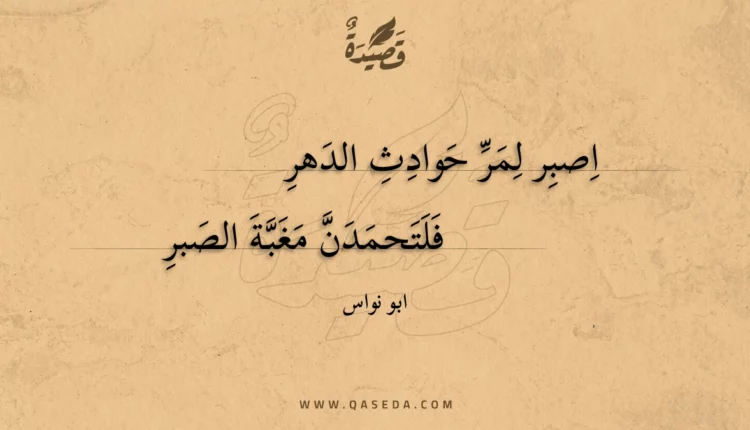 قَصِيْدَةٌ
اِصبِر لِمَرِّ حَوادِثِ الدَهرِ
فَلَتَحمَدَنَّ مَغَبَّةَ الصَبرِ
ابو نواس
WWW.QASEDA.COM